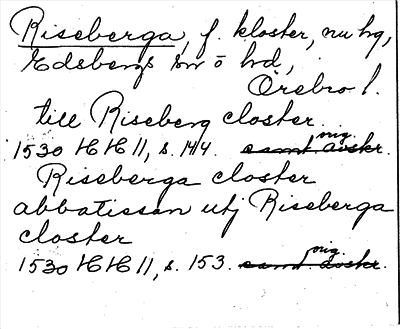 Riseberga, f. kloster, nu hg,
Edsbergs sn o hd,
Örebro l.
till Riseberg closter
1530 HH 11, s. 144. samt avskr. orig.
Riseberga closter
abbatissan utj Riseberga
closter
1530 HH 11, s. 153. samt avskr. orig.